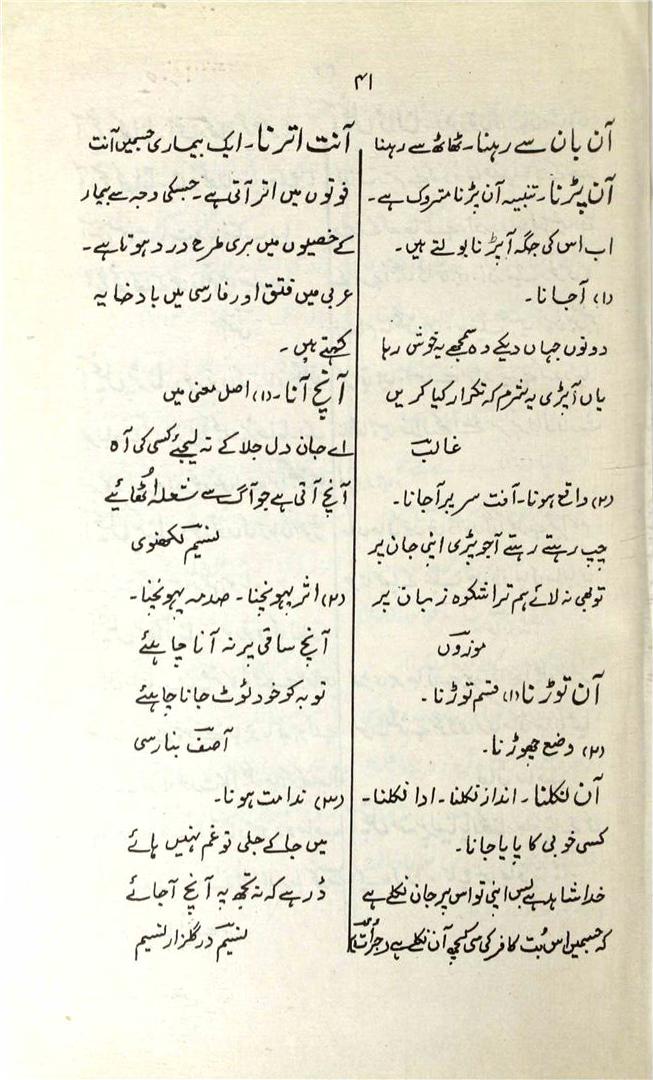 ۴۱
آن بان سے رہنا۔ ٹھاٹھ سے رہنا
آن پڑنا۔ تنبیہ آن پڑنا متروک ہے۔
اب اس کی جگہ آپڑنا بولتے ہیں۔
(۱) آجانا۔
دونوں جہاں دیکے وہ سمجھے یہ خوش رہا
یاں آپڑی یہ شرم کہ تکرار کیا کریں
غالب
(۲) واقع ہونا۔ آفت سر پر آجانا۔
چپ رہتے رہتے آجو پڑی اپنی جان پر
تو بھی نہ لائے ہم ترا شکوہ زبان پر
موزوں
آن توڑنا (۱) قسم توڑنا۔
(۲) وضع چھوڑنا۔
آن نکلنا۔ انداز نکلنا۔ ادا نکلنا۔
کسی خوبی کا پایا جانا۔
خدا شاہد ہے بس اپنی تو اس پر جان نکلے ہے
کہ جسمیں اس بُت کافر کی سی کچھ آن نکلے ہے (جرأت)
آنت اترنا۔ ایک بیماری جسمیں آنت
فوتوں میں اتر آتی ہے۔ جسکی وجہ سے بیمار
کے خصیوں میں بری طرح درد ہوتا ہے۔
عربی میں فتق اور فارسی میں باد خایہ
کہتے ہیں۔
آنچ آنا۔ (۱) اصل معنی میں
اے جان دل جلا کے نہ لیجئے کسی کی آہ
آنچ آتی ہے جو آگ سے شعلہ اُٹھائیے
نسیم لکھنوی
(۲) اثر پہونچنا۔ صدمہ پہونچنا۔
آنچ ساقی پر نہ آنا چاہئے
توبہ کو خود ٹوٹ جانا چاہئے
آصف بنارسی
(۳) ندامت ہونا۔
میں جا کے جلی تو غم نہیں ہائے
ڈر ہے کہ نہ تجھ پہ آنچ آجائے
نسیم در گلزار نسیم